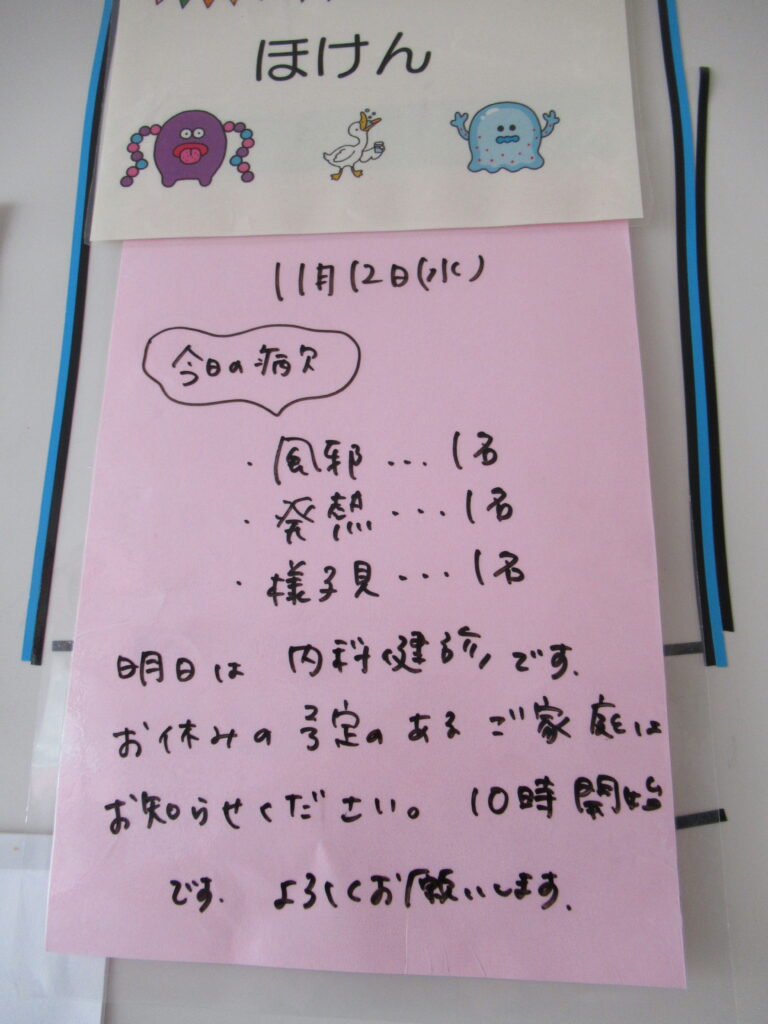 ほけん
11月12日(水)
今日の病欠
・風邪...1名
・発熱...1名
・様子見...1名
明日は 内科健診です.
お休みの予定のある ご家庭は
お知らせください。 10時開始
です. よろしくお願いします.